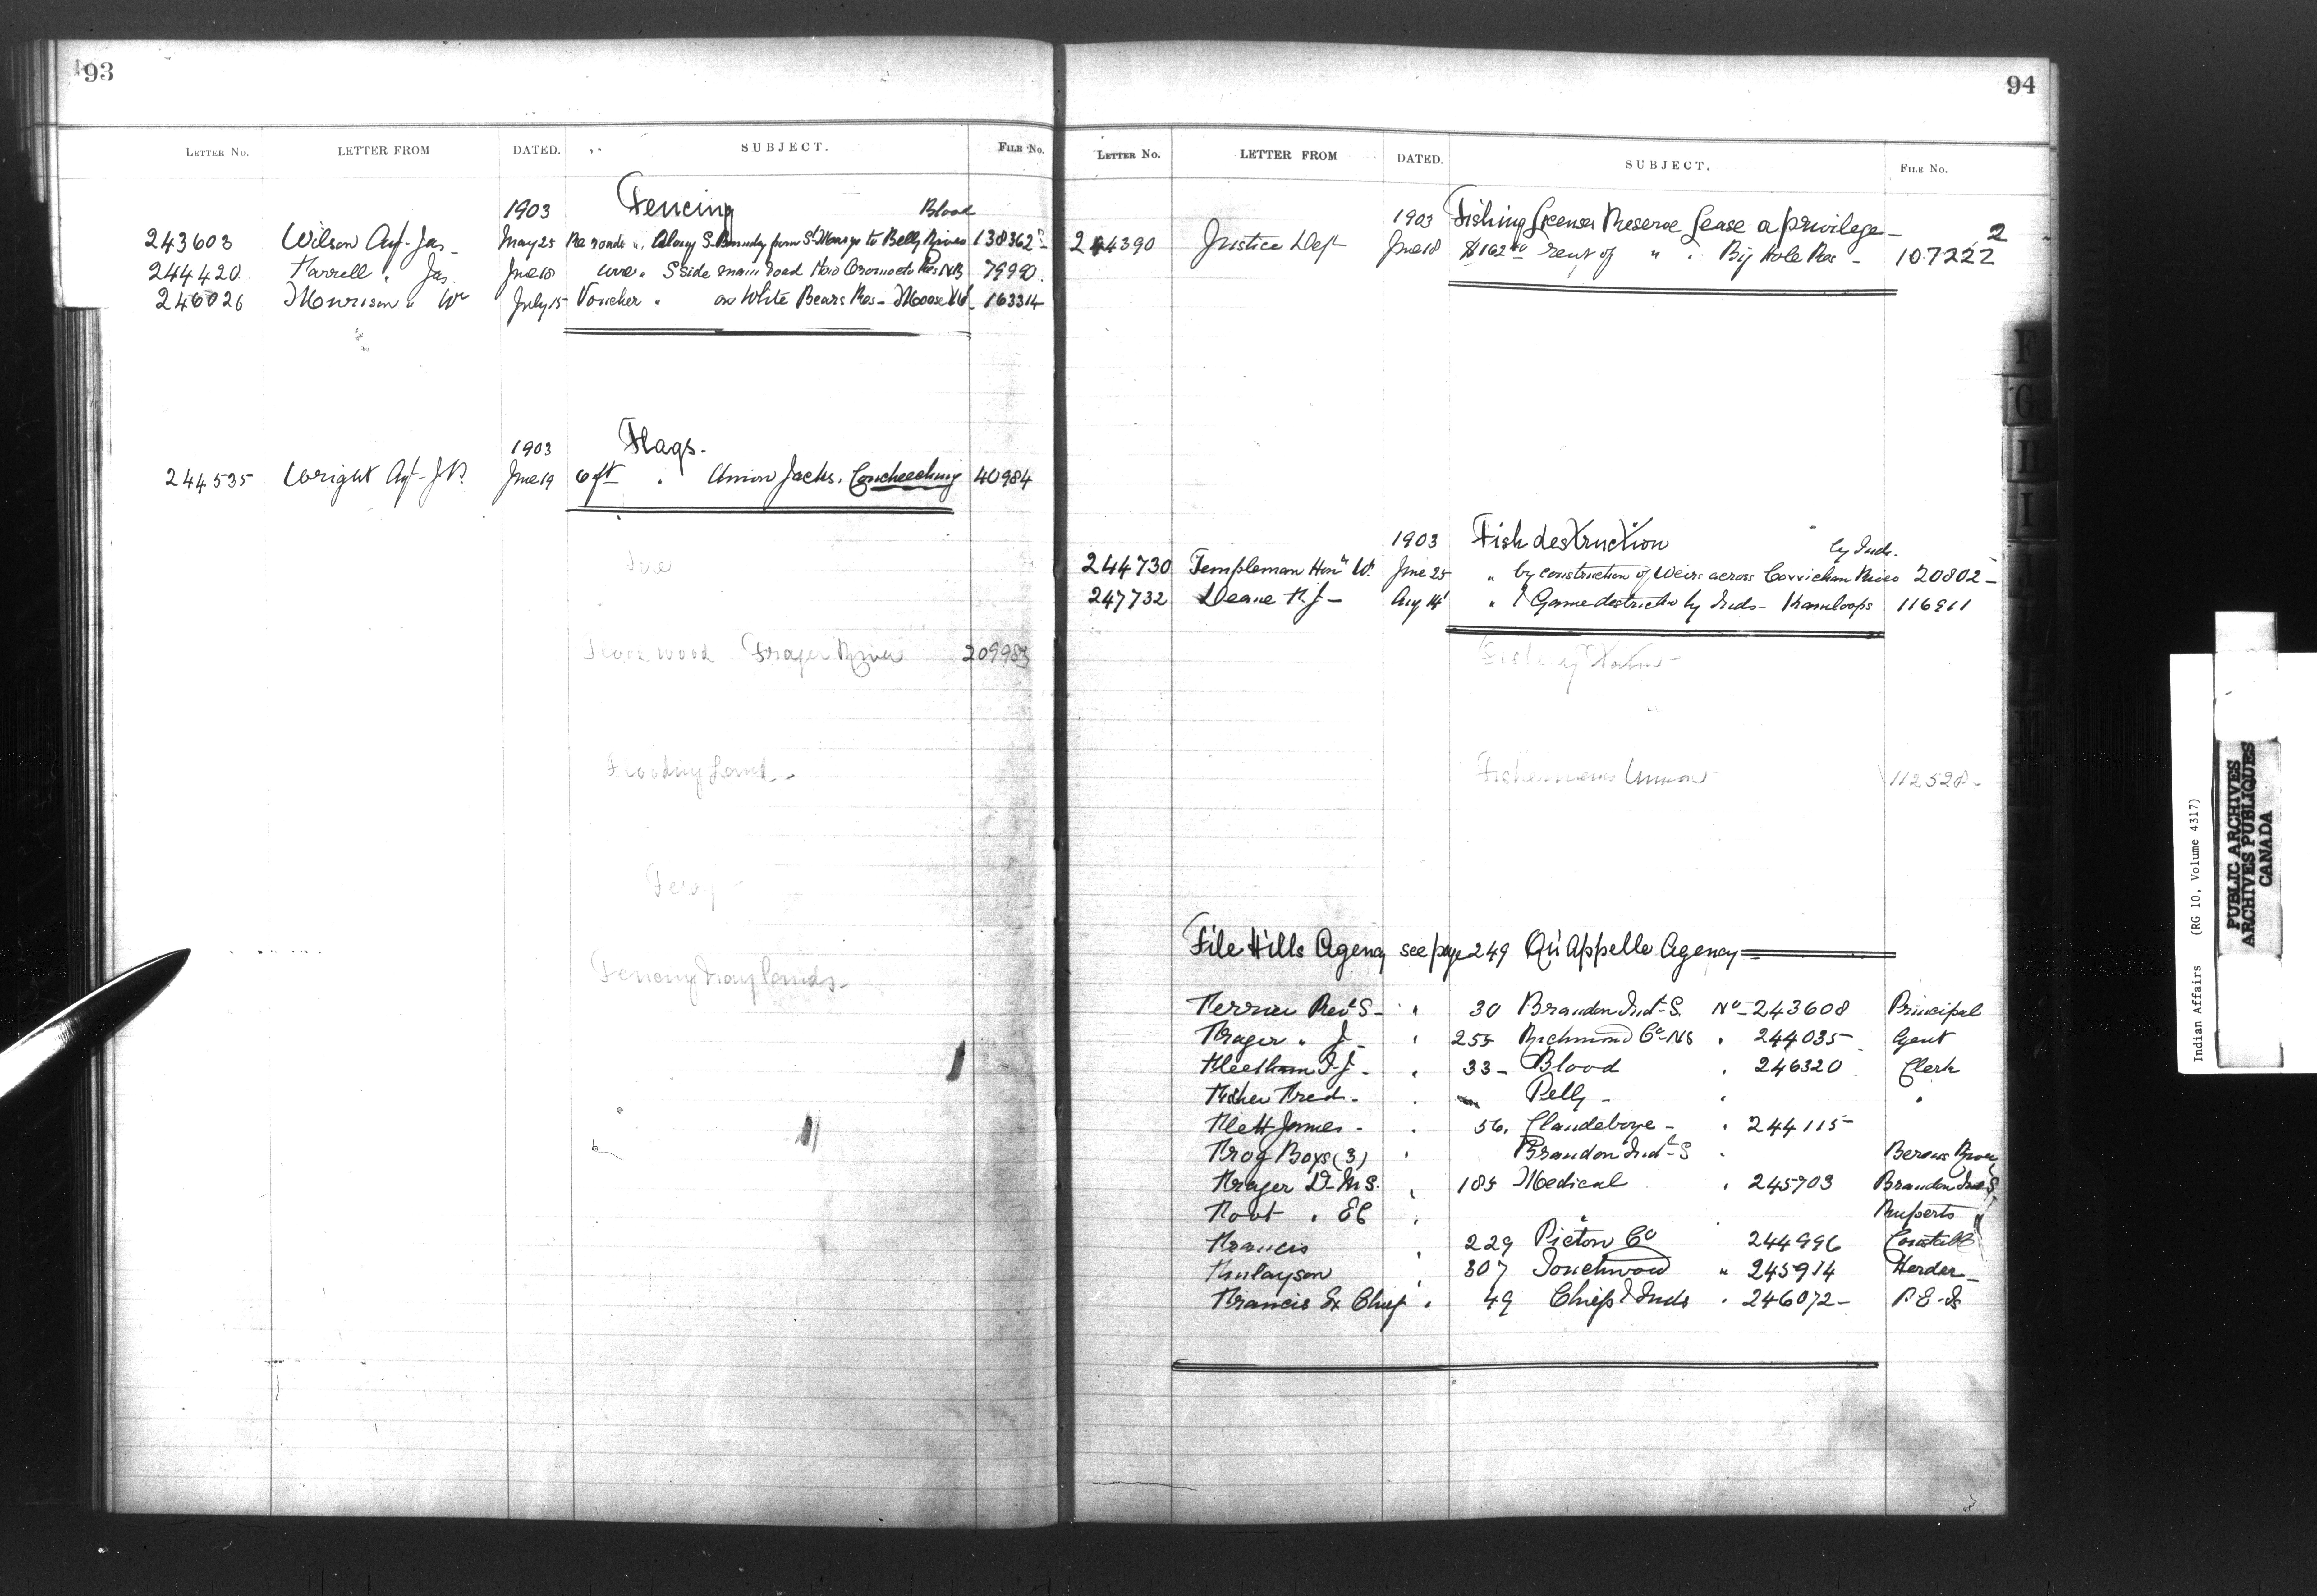 93
LETTER No. LETTER FROM DATED. SUBJECT. FILE No.
1903 Fencing Blood
243603 Wilson Agt Jas May 25 Re roads " Along S. Boundy from St Marys to Belly River 138362
244420 Farrell " Jas June 18 wire " S side main road New Oromocto Res NB 79990
246026 Murison " W July 15 Voucher " on White Bears Res - Moose Mt 163314
1903 Flags.
244535 Wright Agt J.B. June 19 6 ft " Union Jacks, Couchiching 40984
Fire
Wood Fraser River 209983
Flooding Land -
Ferry
Fencing Hay Lands -
94
LETTER No. LETTER FROM DATED. SUBJECT. FILE No.
1903 Fishing License Reserve Lease a privilege -
244390 Justice Dept June 18 $162 rent of " " Big Hole Res - 107222 2
1903 Fish destruction by Inds.
244730 Templeman Hon W. June 25 " by construction of Weirs across Cowichan River 20802 -
247732 Deane R.J - Aug 14 " & Game destructn by Inds - Kamloops 116911
Fishermens Union 112528 -
File Hills Agency see page 249 Qu'Appelle Agency
Ferrier Revd S - " 30 Brandon Indl S. No - 243608 Principal
Fraser " J - " 255 Richmond Co NS " 244035 Agent
Fleetham T.J - " 33 - Blood " 246320 Clerk
Fisher Fred - " Pelly - " "
Flett James - " 56. Clandeboye - " 244115 -
Frog Boys (3) " Brandon Indl S " Berens River
Fraser D - M S. " 185 Medical " 245703 Brandon Ind S.
Foot " E C " " Ruperts "
Francis " 229 Pictou Co 244996 Constable
Finlayson " 307 Touchwood " 245914 Herder -
Francis Ex Chief " 49 Chiefs & Inds " 246072 - P.E. Is
F
G
H
I
J
L
M
N
Indian Affairs (RG 10, Volume 4317)
PUBLIC ARCHIVES
ARCHIVES PUBLIQUES
CANADA